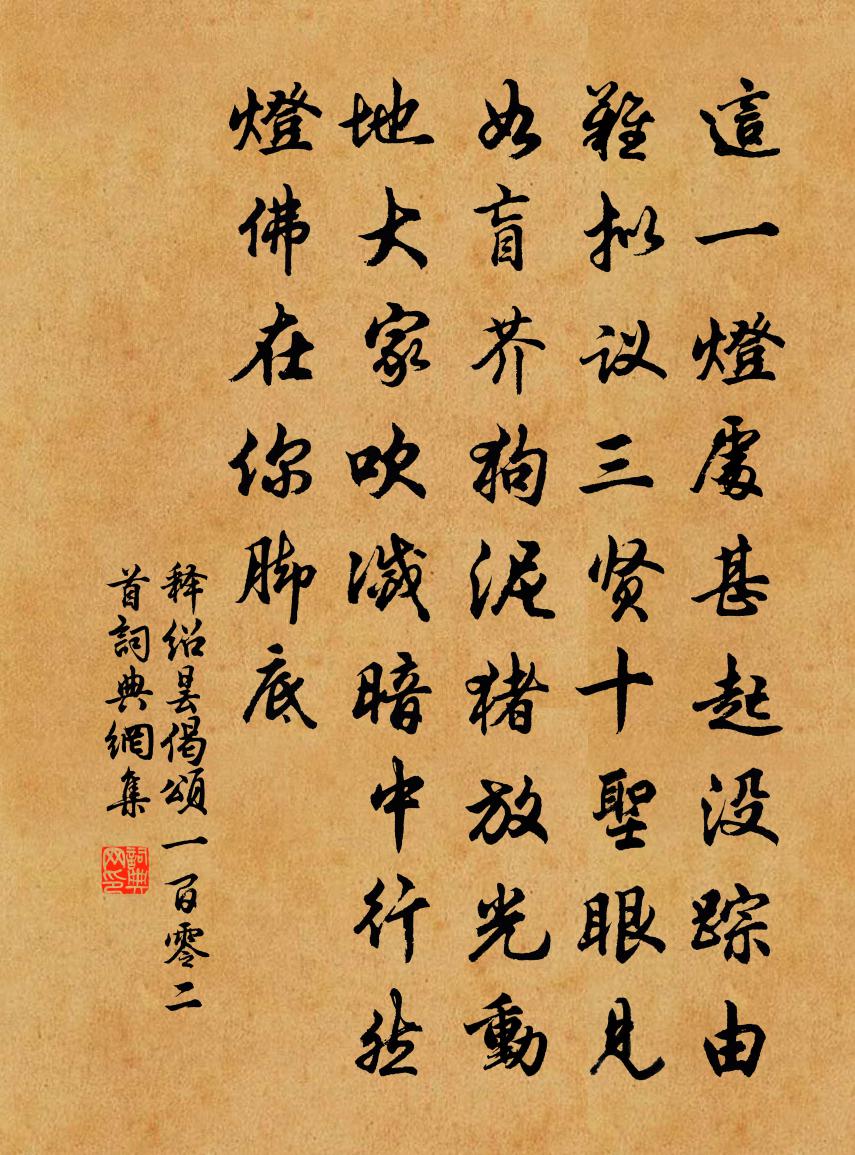 這一燈處甚起没踪由
難拟议三贤十聖眼見
如盲芥狗泥猪放光動
地大家吹滅暗中行然
燈佛在你脚底
释绍昙偈頌一百零二
首詞典網集
詞典网印